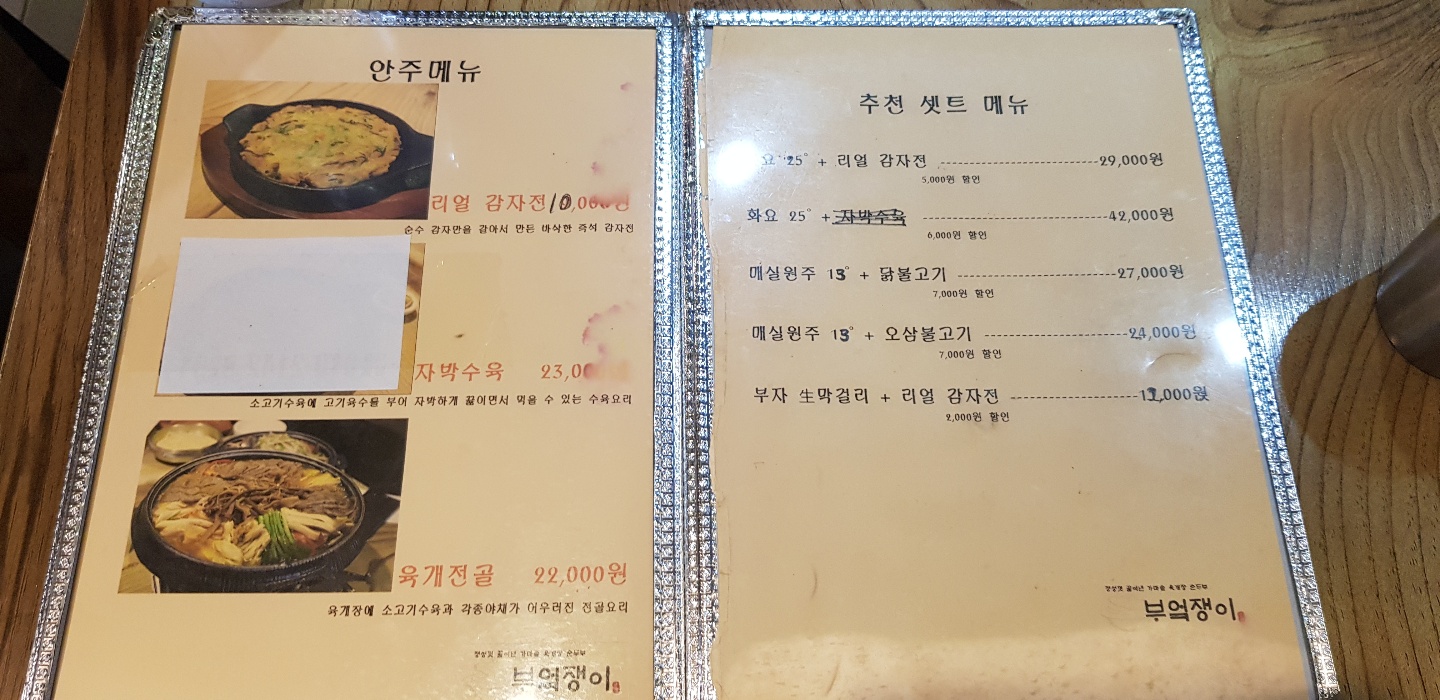 안주메뉴
리얼 감자전 10,000원
순수 감자만을 갈아서 만든 바삭한 즉석 감자전
자박수육 23,00
소고기수육에 고기육수를 부어 자박하게 끓이면서 먹을 수 있는 수육요리
육개전골 22,000원
육개장에 소고기수육과 각종야채가 어우러진 전골요리
부엌쟁이
추천 셋트 메뉴
요 25° + 리얼 감자전 29,000원
5,000원 할인
화요 25° + 자박수육 42,000원
6,000원 할인
매실원주 13° + 닭불고기 27,000원
7,000원 할인
매실원주 13° + 오삼불고기 24,000원
7,000원 할인
부자 生막걸리 + 리얼 감자전
2,000원 할인
부엌쟁이